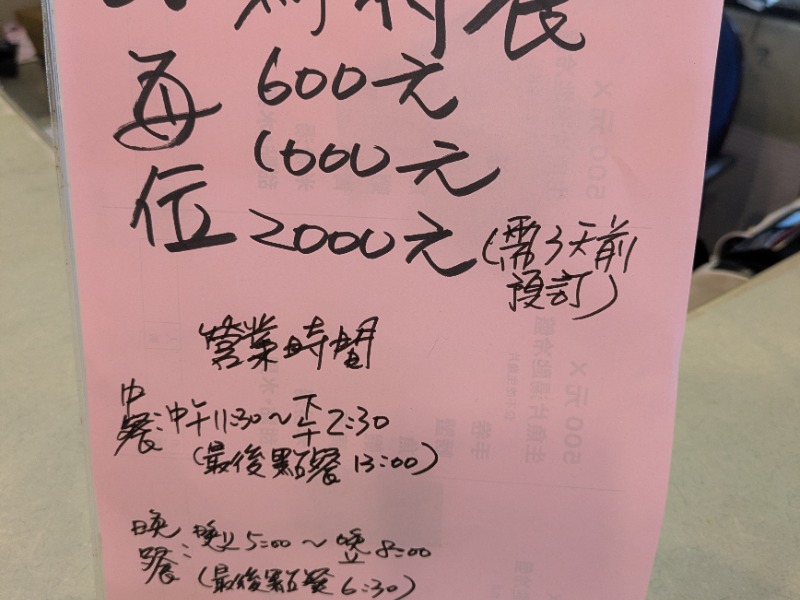 每位 600元
1000元
2000元(需3天前預訂)
營業時間
中餐:中午11:30~下午2:30
(最後點餐 13:00)
晚餐:晚上5:00~晚上8:00
(最後點餐 6:30)